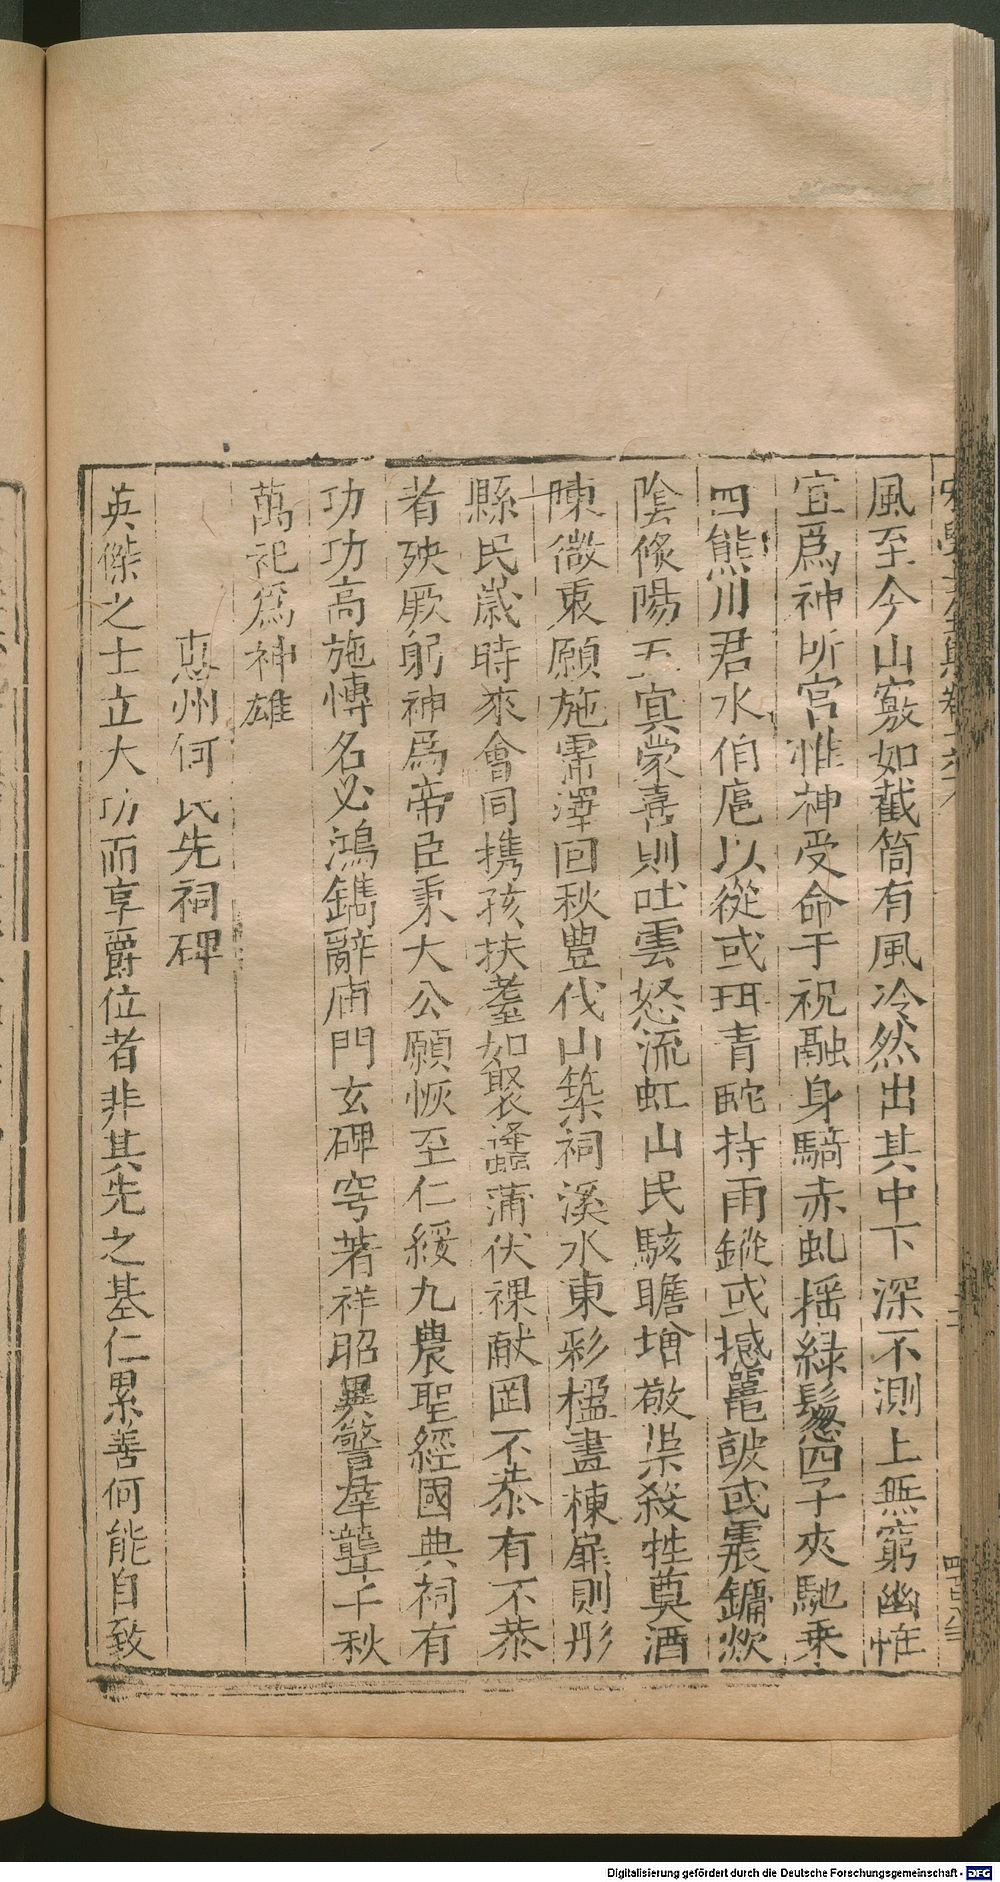 風至今山竅如截筒有風冷然出其中下深不測上無窮幽惟
宜爲神所宮惟神受命于祝融身騎赤虬揺緑鬉四子夾馳乗
四熊川君水伯扈以從或珥青蛇持雨鏦或撼鼉皷或震鏞欻
陰倐陽五寘蒙喜則吐雲怒流虹山民駭瞻增敬崇殺牲奠酒
陳微衷願施霈澤回秋豊伐山築祠溪水東彩楹畫棟扉則彤
縣民歲時來會同携孩扶耋如聚蠭蒲伏祼献罔不恭有不恭
者殃厥躬神爲帝臣秉大公願恢至仁綏九農聖經國典祠有
功功高施愽名必鴻鐫辭廟門玄碑穹著祥昭異警羣聾千秋
萬祀爲神雄
惠州何氏先祠碑
英傑之士立大功而享爵位者非其先之基仁累善何能自致
Digitalisierung gefördert durch die Deutsche Forschungsgemeinschaft - DFG